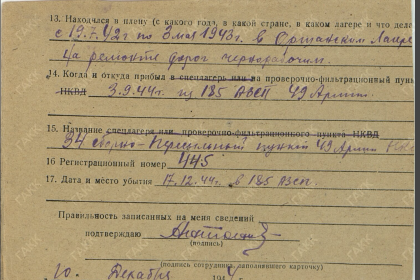 13. Находился в плену (с какого года, в какой стране, в каком лагере и что дела
с 19.V.42г по 3 мая 1943г. в Оршанском лагере
на ремонте дорог чернорабочим.
14. Когда и откуда прибыл в спецлагерь или на проверочно-фильтрационный пунк
НКВД 3.9.44г. из 185 АЗСП 49 Армии.
15. Название спецлагеря или проверочно-фильтрационного пункта НКВД
34 сборно-пересыльный пункт 49 Армии
16 Регистрационный номер 445
17. Дата и место убытия 17.12.44г. в 185 АЗСП.
Правильность записанных на меня сведений
подтверждаю
(подпись)
(подпись сотрудника, заполнявшего карточку)
10. Декабря 194 4